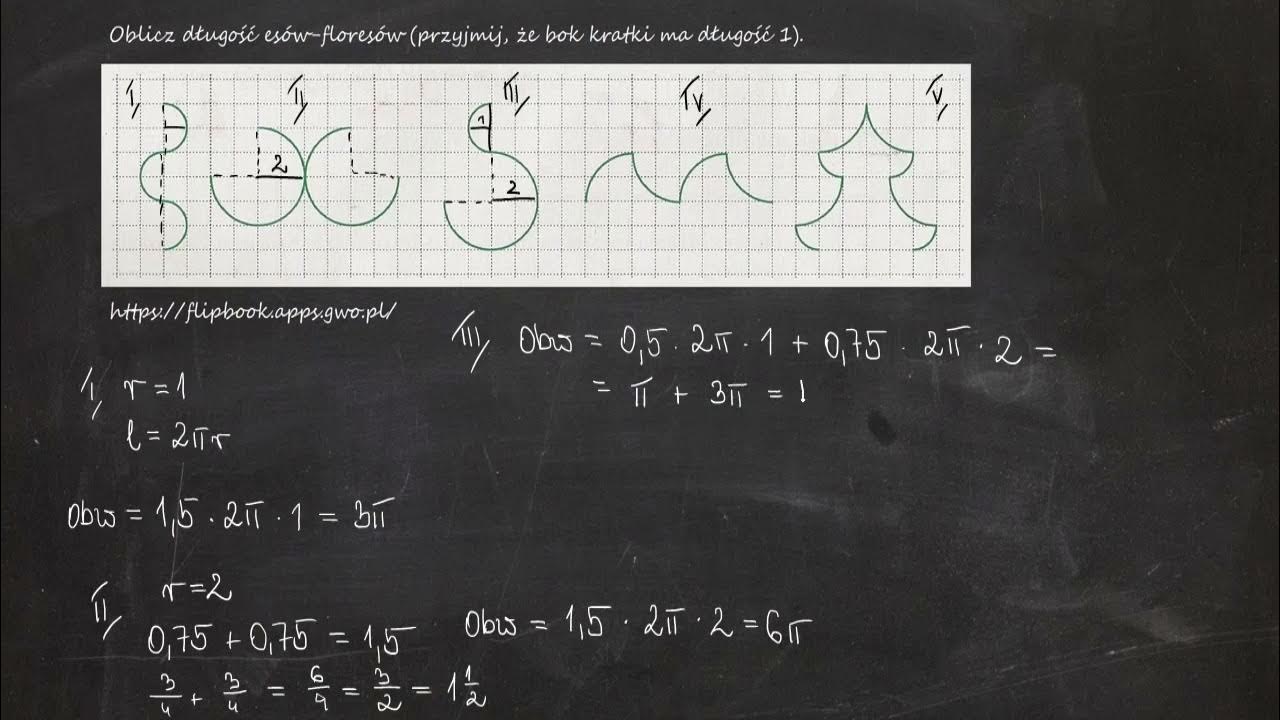 Oblicz długość esów-floresów (przyjmij, że bok kratki ma długość 1).
I, II, III, IV, V,
1
2
2
https://flipbook.apps.gwo.pl/
III, Obw = 0,5 · 2π · 1 + 0,75 · 2π · 2 =
= π + 3π = 
I, r = 1
l = 2πr
Obw = 1,5 · 2π · 1 = 3π
II, r = 2
0,75 + 0,75 = 1,5
Obw = 1,5 · 2π · 2 = 6π
3/4 + 3/4 = 6/4 = 3/2 = 1 1/2